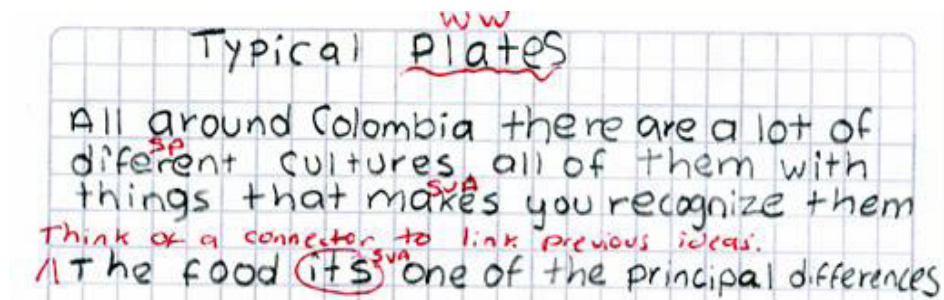 WW
Typical Plates
All around Colombia there are a lot of
SP
diferent cultures, all of them with
SVA
things that makes you recognize them
Think of a connector to link previous ideas.
SVA
The food its one of the principal differences